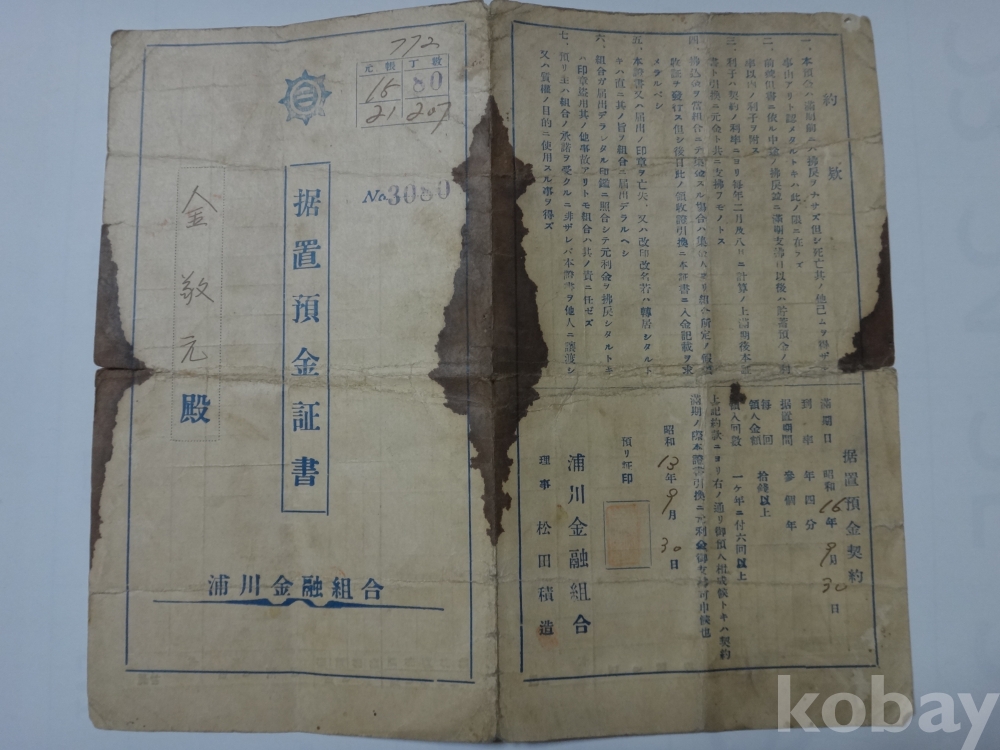 772
元帳丁数
15
80
21
207
No.3080
据置預金証書
金敬元殿
浦川金融組合
約款
一、本預金ハ満期前ニハ拂戻ヲナサズ但シ死亡其ノ他已ムヲ得ザル
事由アリト認メタルトキハ此ノ限ニ在ラズ
二、前項但書ニ依ル中途ノ拂戻竝ニ満期支拂日以後ハ貯蓄預金ノ利
率以内ノ利子ヲ附ス
三、利子ハ契約ノ利率ニヨリ毎年二月及八月ニ計算ノ上満期後本証
書ト引換ニ元金ト共ニ支拂フモノトス
收証ヲ發行ス但シ後日此ノ領收證引換ニ本証書ニ入金記載ヲ受
メタルベシ
五、本證書又ハ届出ノ印章ヲ亡失、又ハ改印改名若ハ轉居シタルト
キハ直ニ其ノ旨ヲ組合ニ届出デラルヘシ
六、組合ガ届出デランタル印鑑ニ照合シテ元利金ヲ拂戻シタルトキ
ハ印章盗用其ノ他事故アリトモ組合ハ其ノ責ニ任ゼズ
七、預リ主ハ組合ノ承諾ヲ受クルニ非ザレバ本證書ヲ他人ニ讓渡シ
又ハ質權ノ目的ニ使用スル事ヲ得ズ
据置預金契約
満期日 昭和16年9月30日
利率 年四分
据置期間 参個年
毎回領入金額 拾錢以上
領入回數 一ケ年ニ付六回以上
上記約款ニヨリ右ノ通リ御預入相成候トキハ契約
満期ノ際本證書引換ニ元利金御支拂可申候也
昭和13年9月30日
預リ証印
浦川金融組合
理事 松田積造
kobay